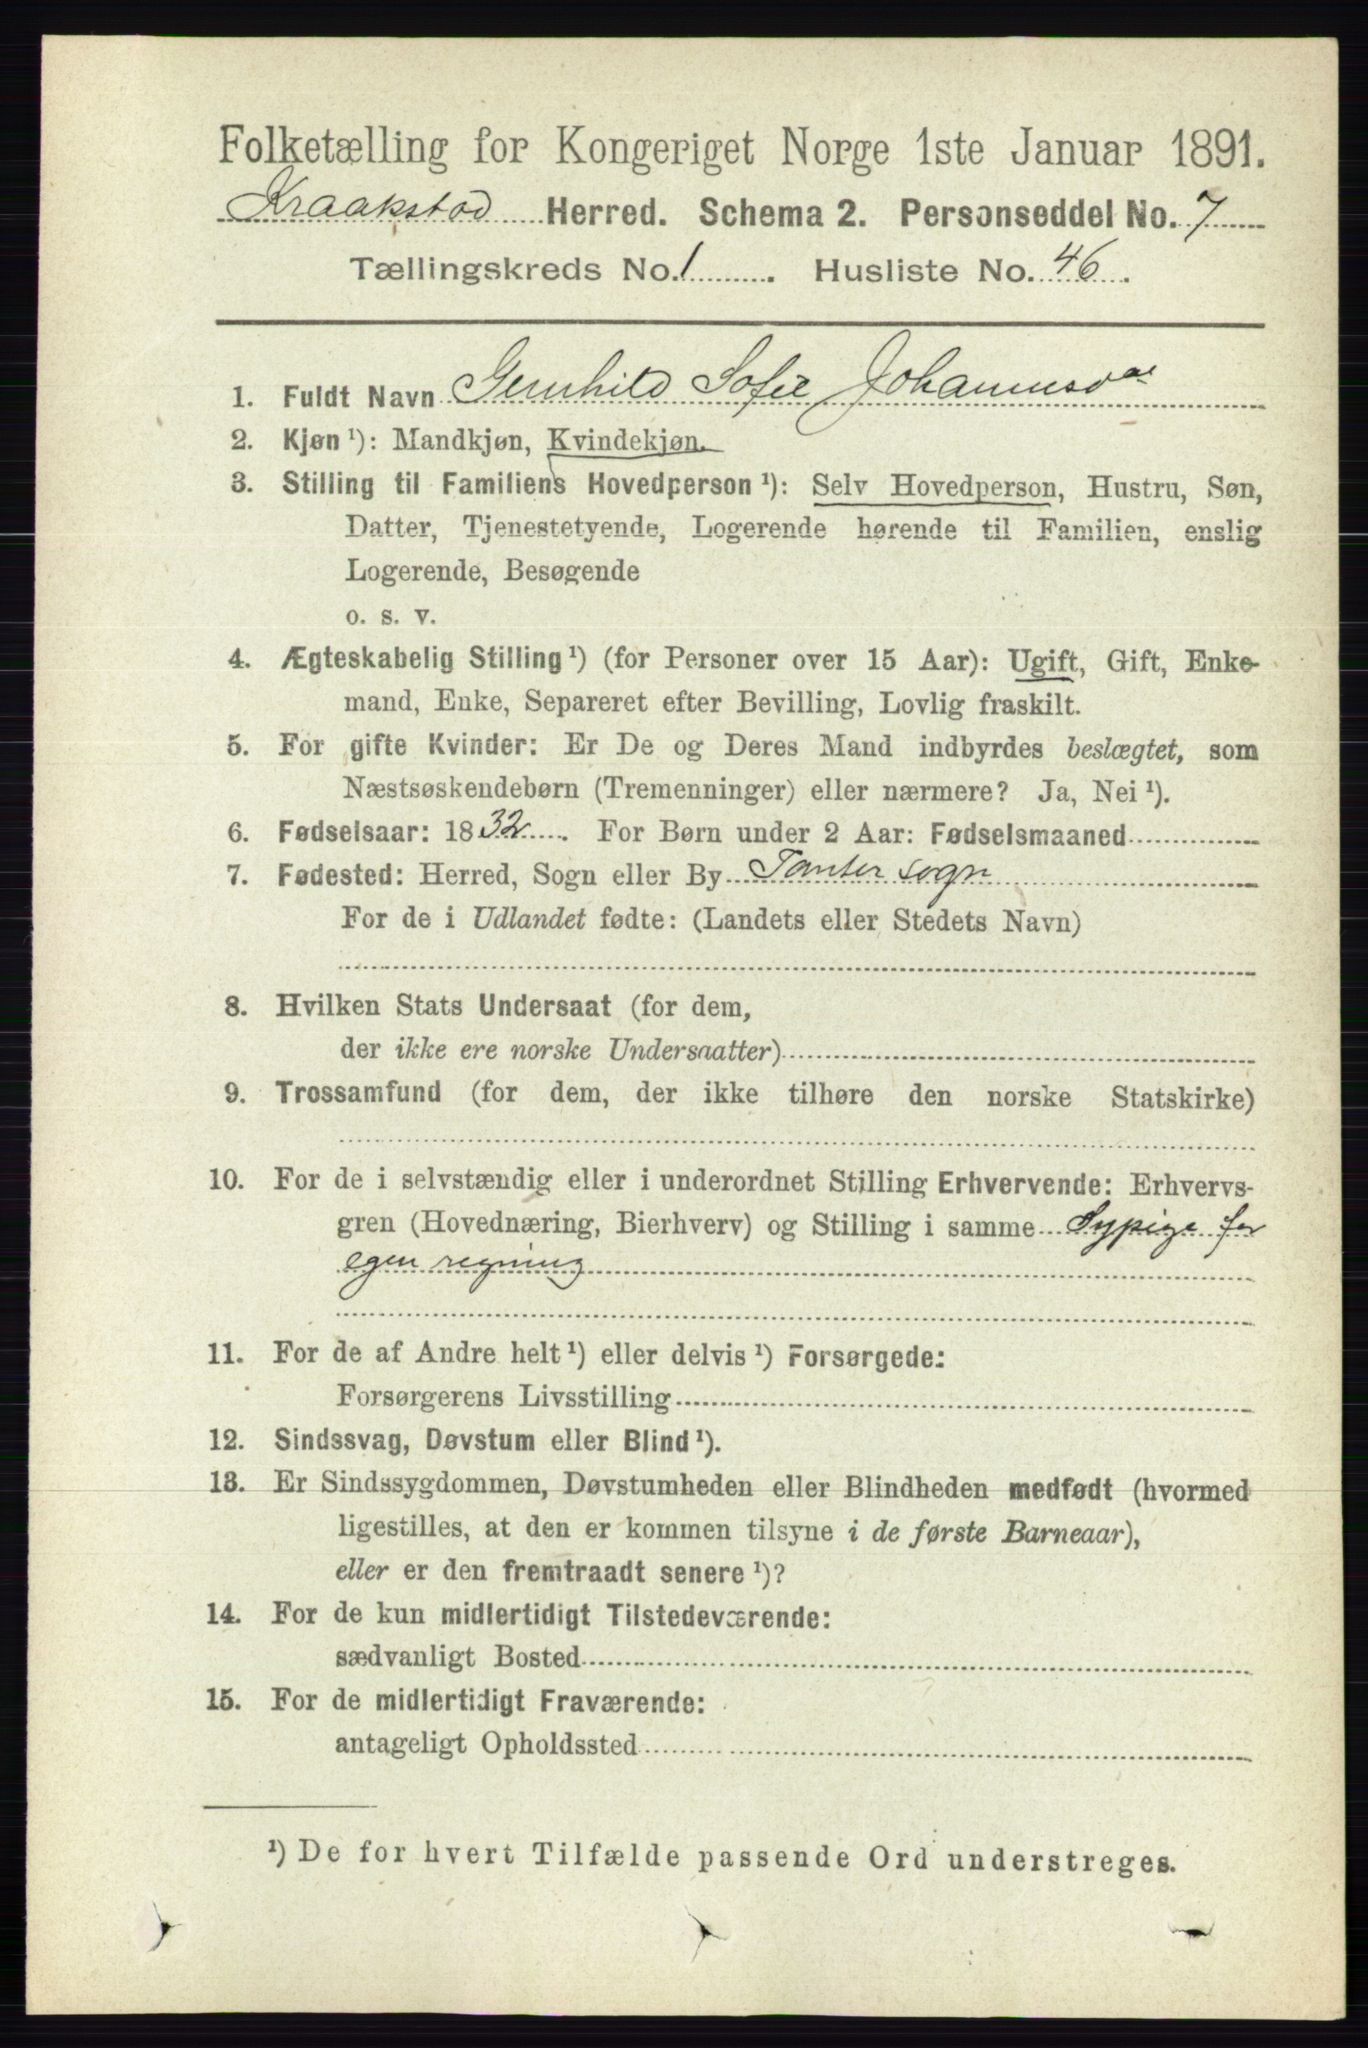 Folketælling for Kongeriget Norge 1ste Januar 1891.
Kraakstad Herred. Schema 2. Personseddel No. 7
Tællingskreds No. 1. Husliste No. 46.
1. Fuldt Navn Gunhild Sofie Johannesdat
2. Kjøn ¹): Mandkjøn, Kvindekjøn.
3. Stilling til Familiens Hovedperson ¹): Selv Hovedperson, Hustru, Søn,
Datter, Tjenestetyende, Logerende hørende til Familien, enslig
Logerende, Besøgende
o. s. v.
4. Ægteskabelig Stilling ¹) (for Personer over 15 Aar): Ugift, Gift, Enke-
mand, Enke, Separeret efter Bevilling, Lovlig fraskilt.
5. For gifte Kvinder: Er De og Deres Mand indbyrdes beslægtet, som
Næstsøskendebørn (Tremenninger) eller nærmere? Ja, Nei ¹).
6. Fødselsaar: 1832. For Børn under 2 Aar: Fødselsmaaned
7. Fødested: Herred, Sogn eller By Tomter sogn
For de i Udlandet fødte: (Landets eller Stedets Navn)
8. Hvilken Stats Undersaat (for dem,
der ikke ere norske Undersaatter)
9. Trossamfund (for dem, der ikke tilhøre den norske Statskirke)
10. For de i selvstændig eller i underordnet Stilling Erhvervende: Erhvervs-
gren (Hovednæring, Bierhverv) og Stilling i samme Sypige for
egen regning
11. For de af Andre helt ¹) eller delvis ¹) Forsørgede:
Forsørgerens Livsstilling
12. Sindssvag, Døvstum eller Blind ¹).
13. Er Sindssygdommen, Døvstumheden eller Blindheden medfødt (hvormed
ligestilles, at den er kommen tilsyne i de første Barneaar),
eller er den fremtraadt senere ¹)?
14. For de kun midlertidigt Tilstedeværende:
sædvanligt Bosted
15. For de midlertidigt Fraværende:
antageligt Opholdssted
¹) De for hvert Tilfælde passende Ord understreges.